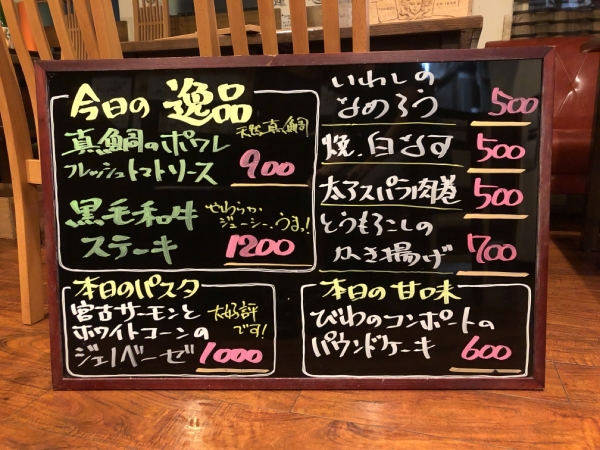 今日の 逸品
真鯛のポワレ
天然真鯛
フレッシュトマトソース
900
黒毛和牛
ステーキ
やわらか
ジューシー、うまっ!
1200
いわしの
なめろう 500
焼、白なす 500
太アスパラ肉巻 500
とうもろこしの
かき揚げ 700
本日のパスタ
宮古サーモンと
ホワイトコーンの
ジェノベーゼ
大好評
です!
1000
本日の甘味
びわのコンポートの
パウンドケーキ 600